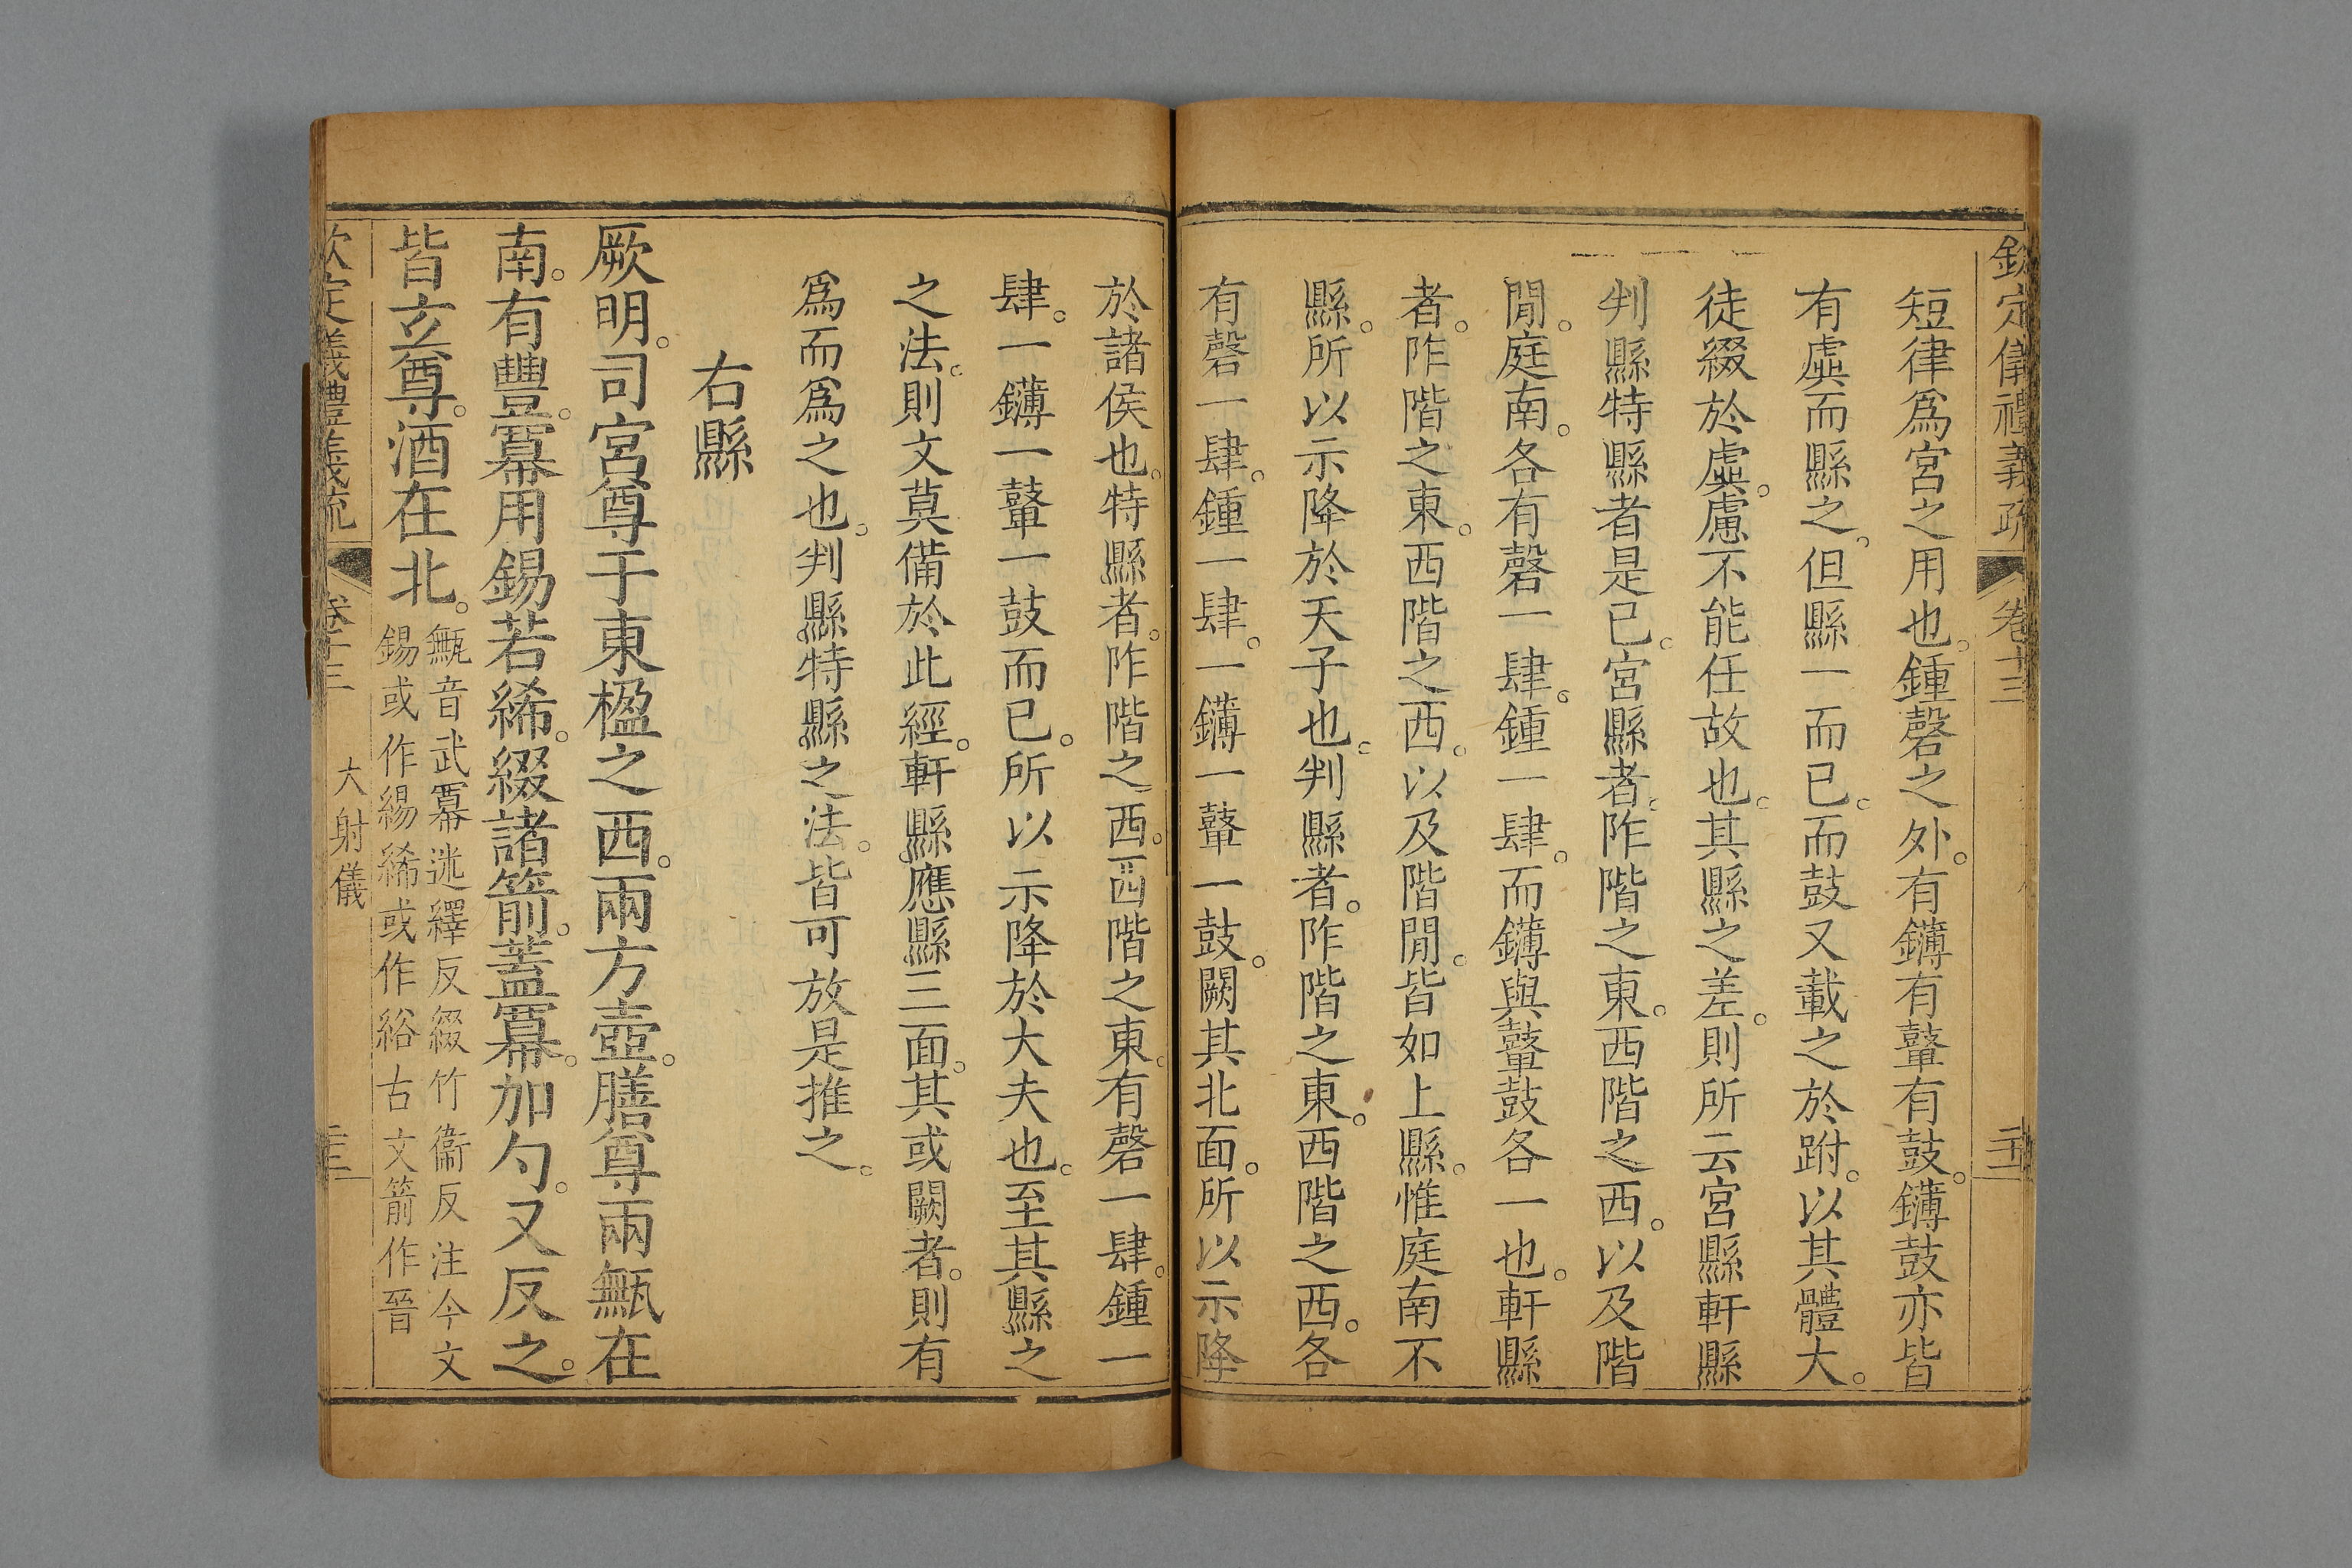 欽定儀禮義疏 卷十三
短律爲宮之用也。鍾磬之外。有鑮有鼙有鼓。鑮鼓亦皆
有虡而縣之。但縣一而已。而鼓又載之於跗。以其體大。
徒綴於虡。慮不能任故也。其縣之差。則所云宮縣軒縣
判縣特縣者是已。宮縣者。阼階之東。西階之西。以及階
閒。庭南。各有磬一肆。鍾一肆。而鑮與鼙鼓各一也。軒縣
者。阼階之東。西階之西。以及階閒。皆如上縣。惟庭南不
縣。所以示降於天子也。判縣者。阼階之東。西階之西。各
有磬一肆。鍾一肆。一鑮一鼙一鼓。闕其北面。所以示降
於諸侯也。特縣者。阼階之西。西階之東。有磬一肆。鍾一
肆。一鑮一鼙一鼓而已。所以示降於大夫也。至其縣之
之法。則文莫備於此經。軒縣應縣三面。其或闕者。則有
爲而爲之也。判縣特縣之法。皆可放是推之。
右縣
厥明。司宮尊于東楹之西。兩方壺。膳尊兩甒在
南。有豐。冪用錫若絺。綴諸箭。蓋冪。加勺。又反之。
皆玄尊。酒在北。
甒音武冪迷繹反綴竹衞反注今文
錫或作緆絺或作綌古文箭作晉
欽定儀禮義疏 卷十三 大射儀